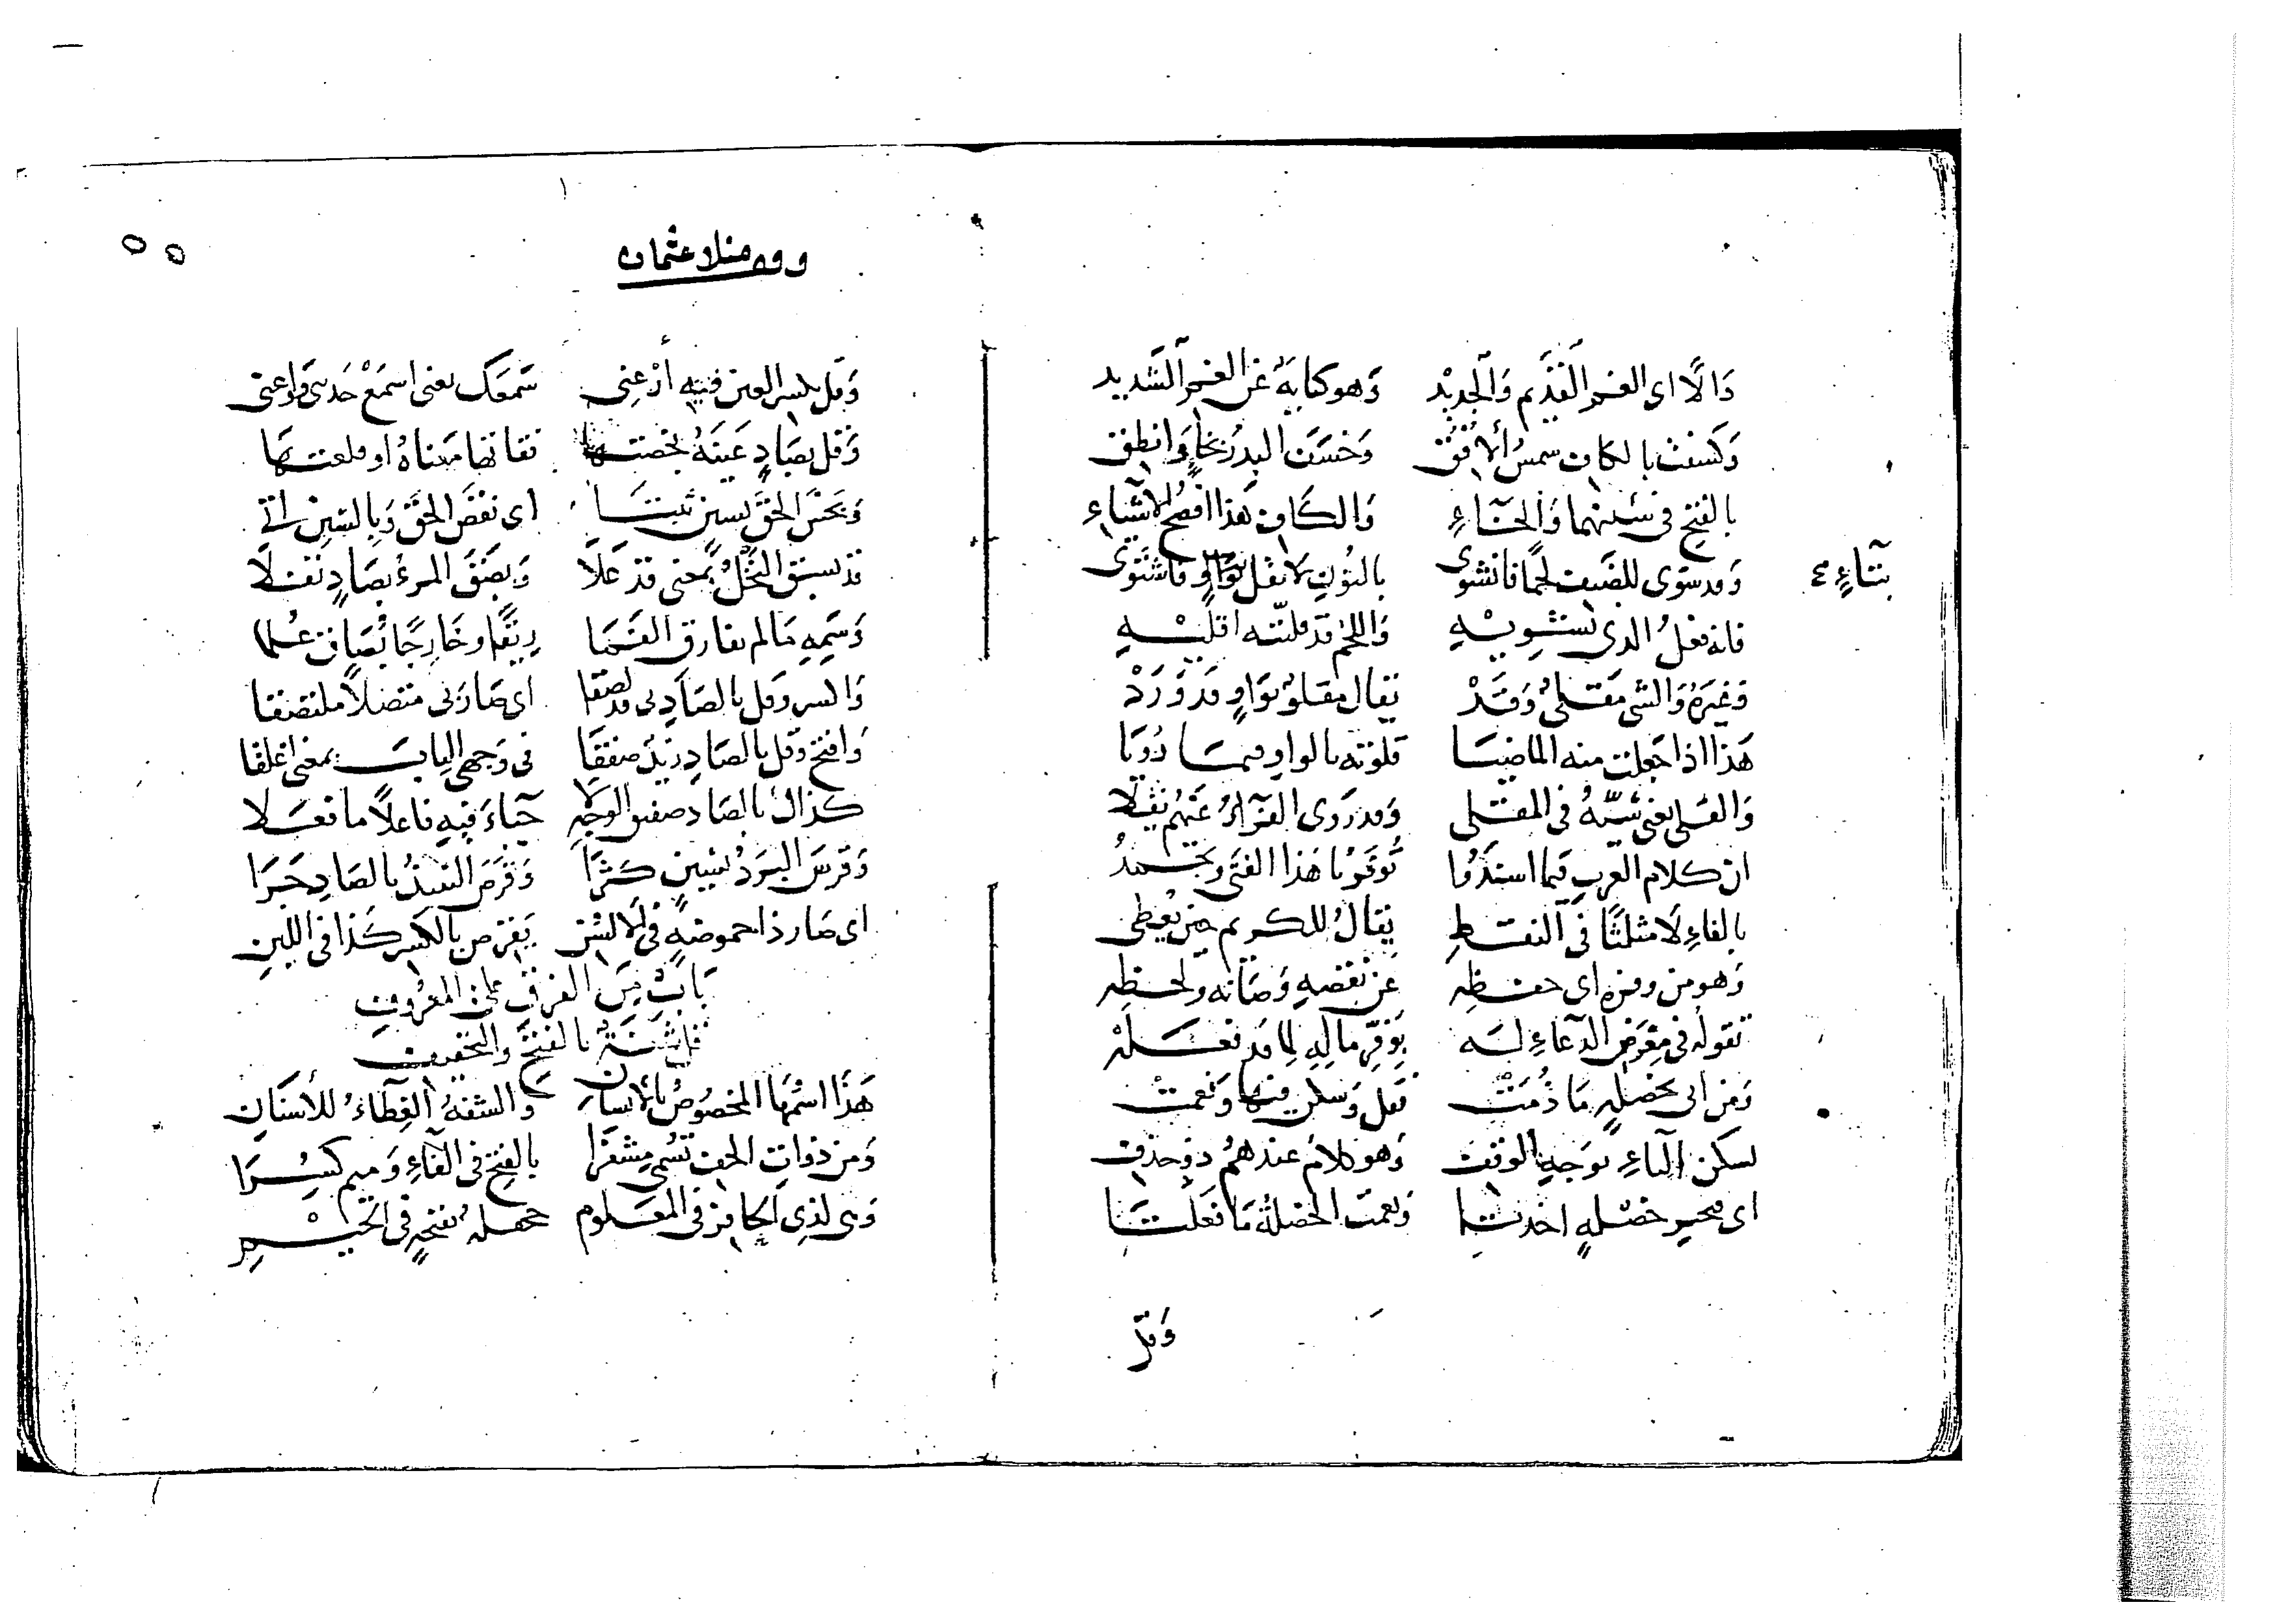 وَالآ اى الغم القَدِيم وَالجَدِيْد وَهو كنايةٌ عَن الغم الشَديد
وَكَسفت بالكاف شمسُ الأفق وَخسَفَ البدرُ بخاءٍ وَانطبق
بالفتح فى سينهما وَالخآءِ وَالكاف هَذا افصح الاشياءِ
وقد شوى للضيف لحمًا فانشوى بالنون لا تقل بتاءٍ فاشتوى
بتآءٍ
فانه فعلُ الذى يستشويْهِ وَاللحم قد قليته اقليْهِ
وَغيرهُ وَالشى مَقلىٌ وَقَدْ يقال مقلوٌ بوَاوٍ قد وَرَدْ
هَذا اذا جَعلت منه الماضيَا قلوته بالواو فيما رُويَا
وَالقلى يعنى شيّهُ فى المقلى وَقد رَوى الفرآءُ عَنهم نقلا
ان كلام العرب فيما اسنَدُوا تُوفَرُ يا هَذا الفتى وَتحمدُ
بالفاءِ لا مثلثًا فى النقط يقالُ للكريم حين يُعطى
وَهو من وفره اى حفظِهِ عَن نقصهِ وَصَانه ولحظِهِ
تقولُه فى مَعرَض الدعاءِ لَه بوَفرِ مالِهِ لما قد فعَلَهْ
وَمن اتى بخصلةٍ مَا ذُمَتْ فقل وَسكن فبها وَنعمتْ
بسكن التاءِ بوَجهِ الوقف وَهو كلام عندهم ذو حذف
اى فخير خصْلةٍ اخَذتَا وَنعمت الخصلةُ مَا فعَلتَا
وَقل
ووه منلا عثمان
٥٥
وَقل بكسر العين فيهِ أرْعِنى سَمعَك يعنى اسمَعْ حَديثى وَاوعنى
وَقل بصَادٍ عَينَهُ بخصتها فقاتها مَعناهُ او قلعتهَا
وَبخسَ الحقَ بسينٍ ثبتَا اى نقصَ الحقَ وَبالسين اتى
قد بسق النخلُ بمعنى قد عَلاَ وَبصَقَ المرءُ بصَادٍ نقلاَ
وَسَمِهِ مَا لم يفارق الفَمَا رِيقًا وخَارِجًا بُصَاق عُلما
وَاكسر وقل بالصَادِ لى قد لصقا اى صَارَ لى متصلاً ملتصقا
وَافتح وقل بالصَادِ زيدٌ صفقَا فى وَجهى البابَ بمعنى اغلقا
كذاك بالصَاد صفيق الوجهِ جَاءَ فيهِ فاعلاً ما فعَلا
وَقرسَ البرَدُ بسينٍ كثرَا وَقَرَصَ النبيذُ بالصَادِ جَرَا
اى صَار ذا حموضةٍ فى الالسُن يَقرص بالكسر كَذا فى اللبنِ
بَابٌ مِنَ الفرق على المعرُوف
قل شَفَةٌ بالفتح والتخفيف
هَذا اسْمُهَا المخصُوصُ بالانسان وَالشفةُ الغِطَاءُ للأسنَانِ
وَمن ذوات الخف تسُمى مِشفَرا بالفتح فى الفآءِ وَميم كسُرَا
وَهى لذى الحافر فى المعَلوم جحفلةٌ بفتحٍ فى الجيْمِ